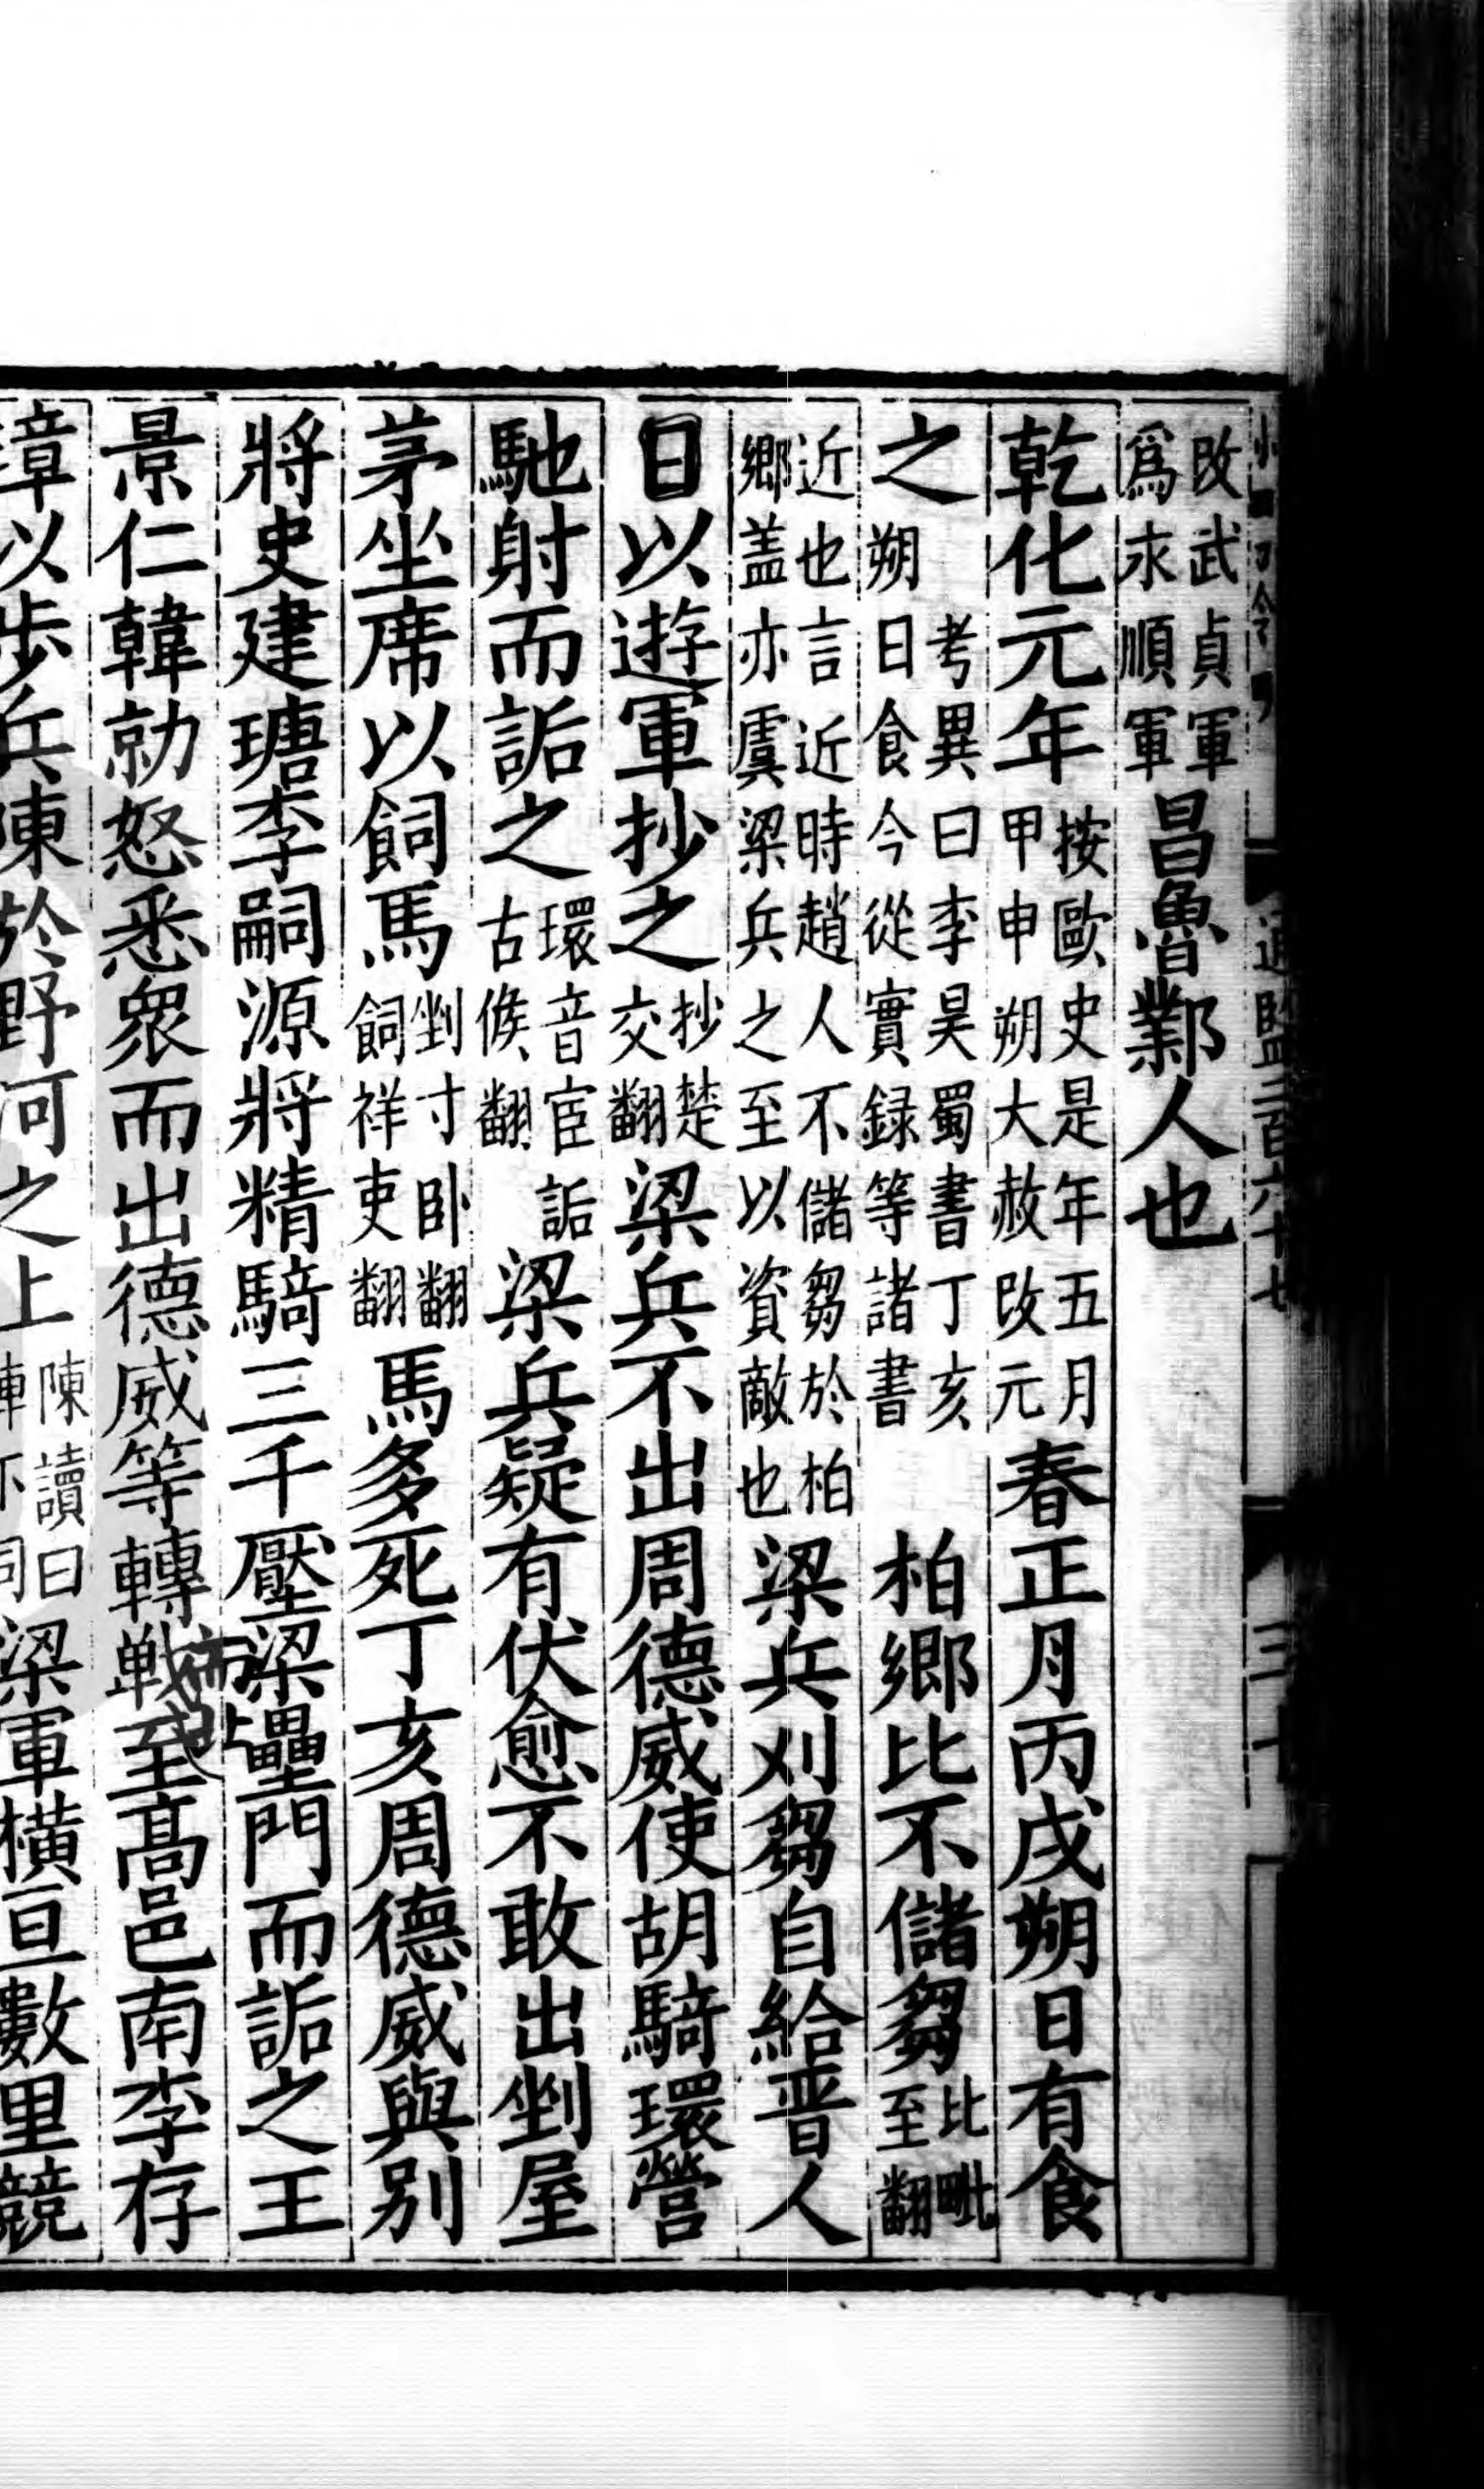 通鑑二百六十七
改武貞軍爲永順軍昌魯酇人也
乾化元年按歐史是年五月甲申朔大赦改元春正月丙戌朔日有食
之考異曰李昊蜀書丁亥朔日食今從實録等諸書柏鄉比不儲芻比毗至翻
近也言近時趙人不儲芻於柏鄉盖亦虞梁兵之至以資敵也梁兵刈芻自給晋人
日以遊軍抄之抄楚交翻梁兵不出周德威使胡騎環營
馳射而詬之環音宦詬古候翻梁兵疑有伏愈不敢出剉屋
茅坐席以飼馬剉寸卧翻飼祥吏翻馬多死丁亥周德威與别
將史建瑭李嗣源將精騎三千壓梁壘門而詬之王
景仁韓勍怒悉衆而出德威等轉戰而北至髙邑南李存
璋以步兵陳於野河之上陳讀曰陣下同梁軍横亘數里競